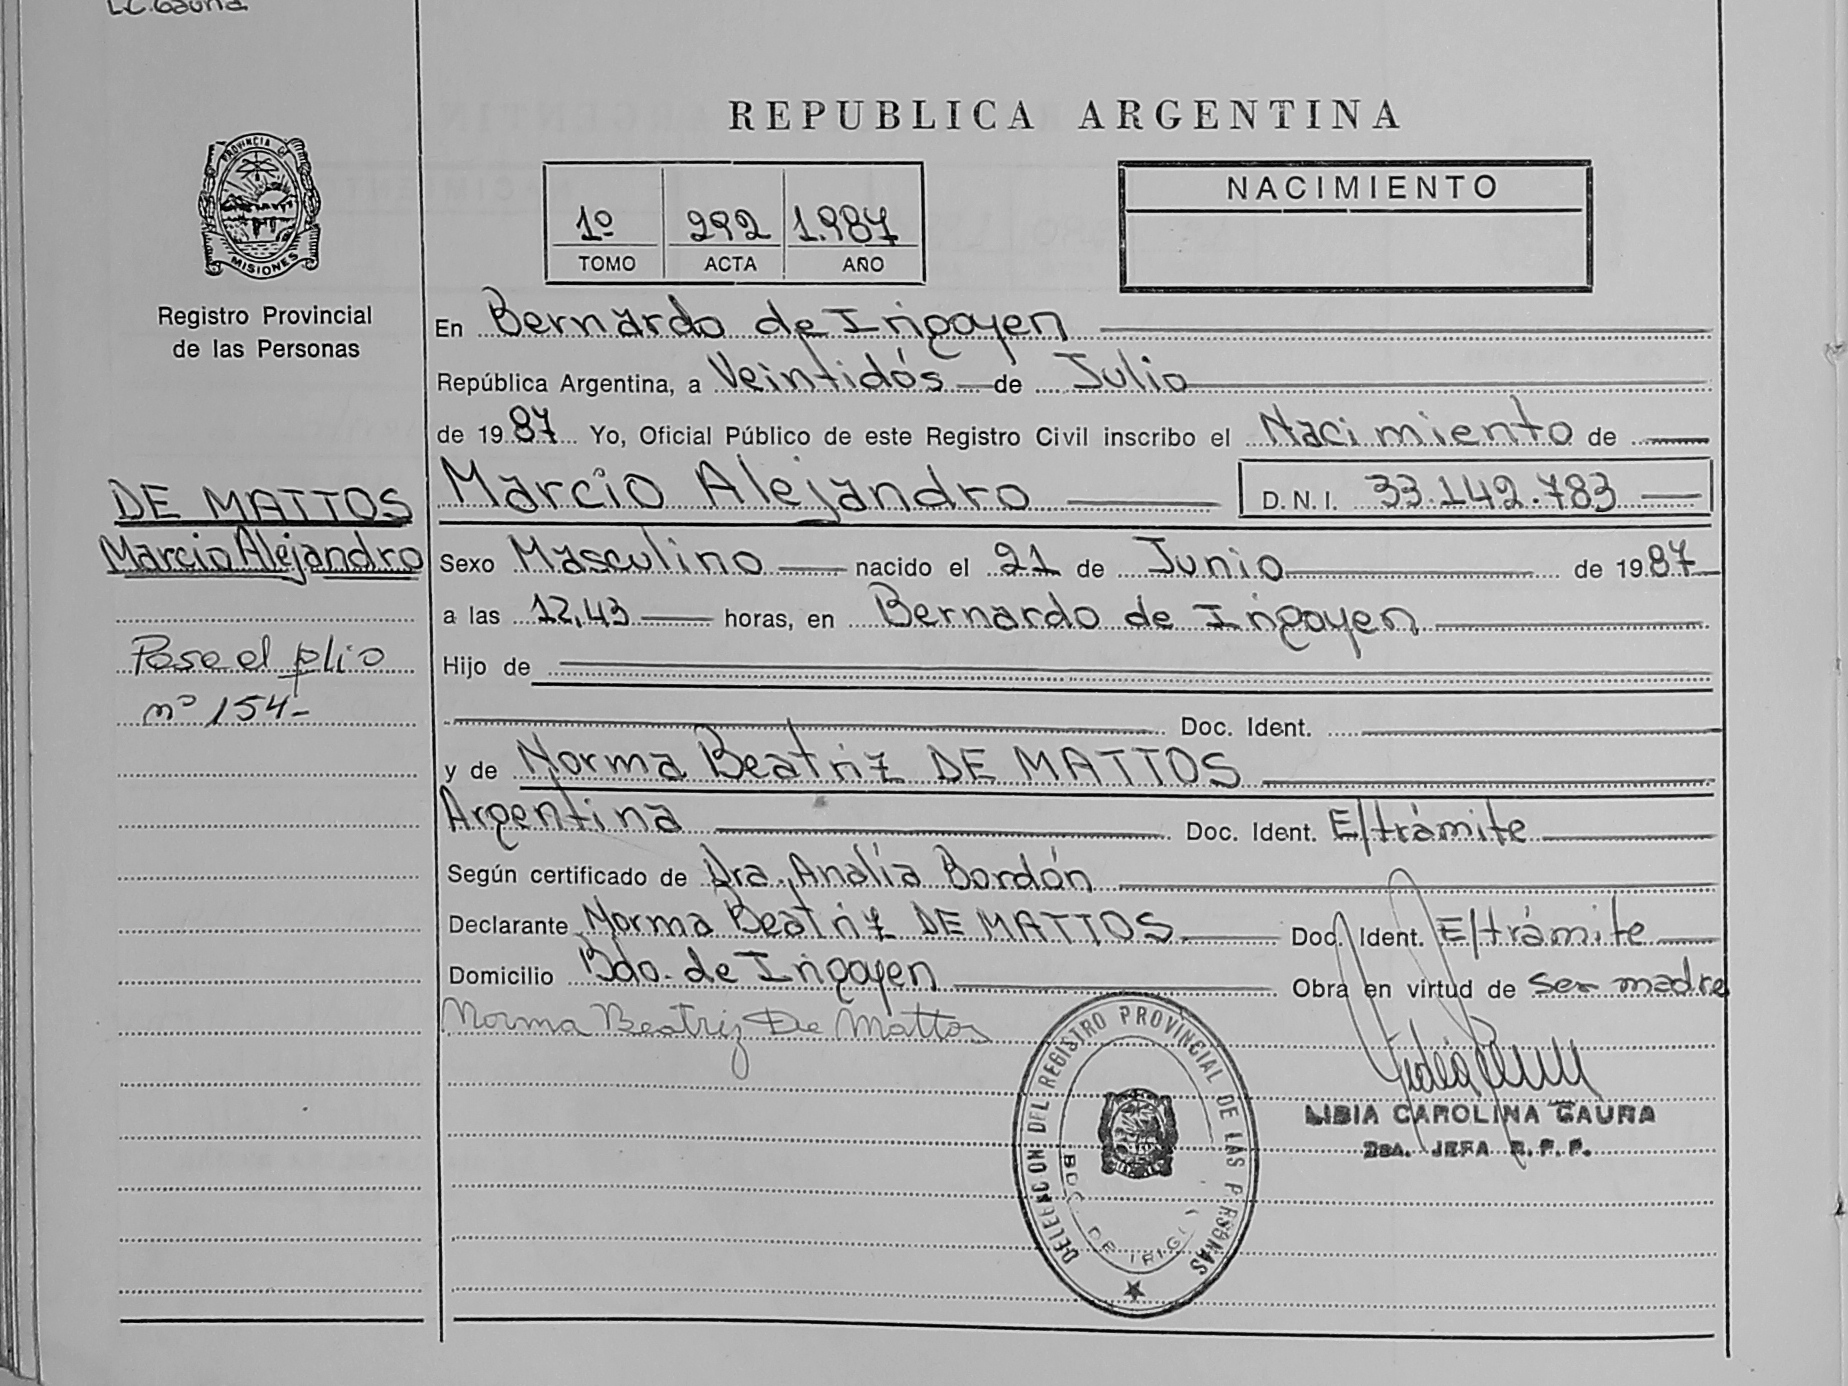 L.C. Gauna
REPUBLICA ARGENTINA
PROVINCIA DE
MISIONES
Registro Provincial
de las Personas
1º 292 1.987
TOMO ACTA AÑO
NACIMIENTO
En Bernardo de Irigoyen
República Argentina, a Veintidós de Julio
de 1987 Yo, Oficial Público de este Registro Civil inscribo el Nacimiento de
DE MATTOS
Marcio Alejandro
Marcio Alejandro D.N.I. 33.142.783
Sexo Masculino nacido el 21 de Junio de 1987
a las 12,43 horas, en Bernardo de Irigoyen
Pase el plio
nº 154-
Hijo de
Doc. Ident.
y de Norma Beatriz DE MATTOS
Argentina Doc. Ident. E/trámite
Según certificado de Dra. Analía Bordón
Declarante Norma Beatriz DE MATTOS Doc. Ident. E/trámite
Domicilio Bdo. de Irigoyen Obra en virtud de ser madre
Norma Beatriz De Mattos
DELEGACION DEL REGISTRO PROVINCIAL DE LAS PERSONAS
BDO. DE IRIGO
LIBIA CAROLINA GAUNA
JEFA R.P.P.